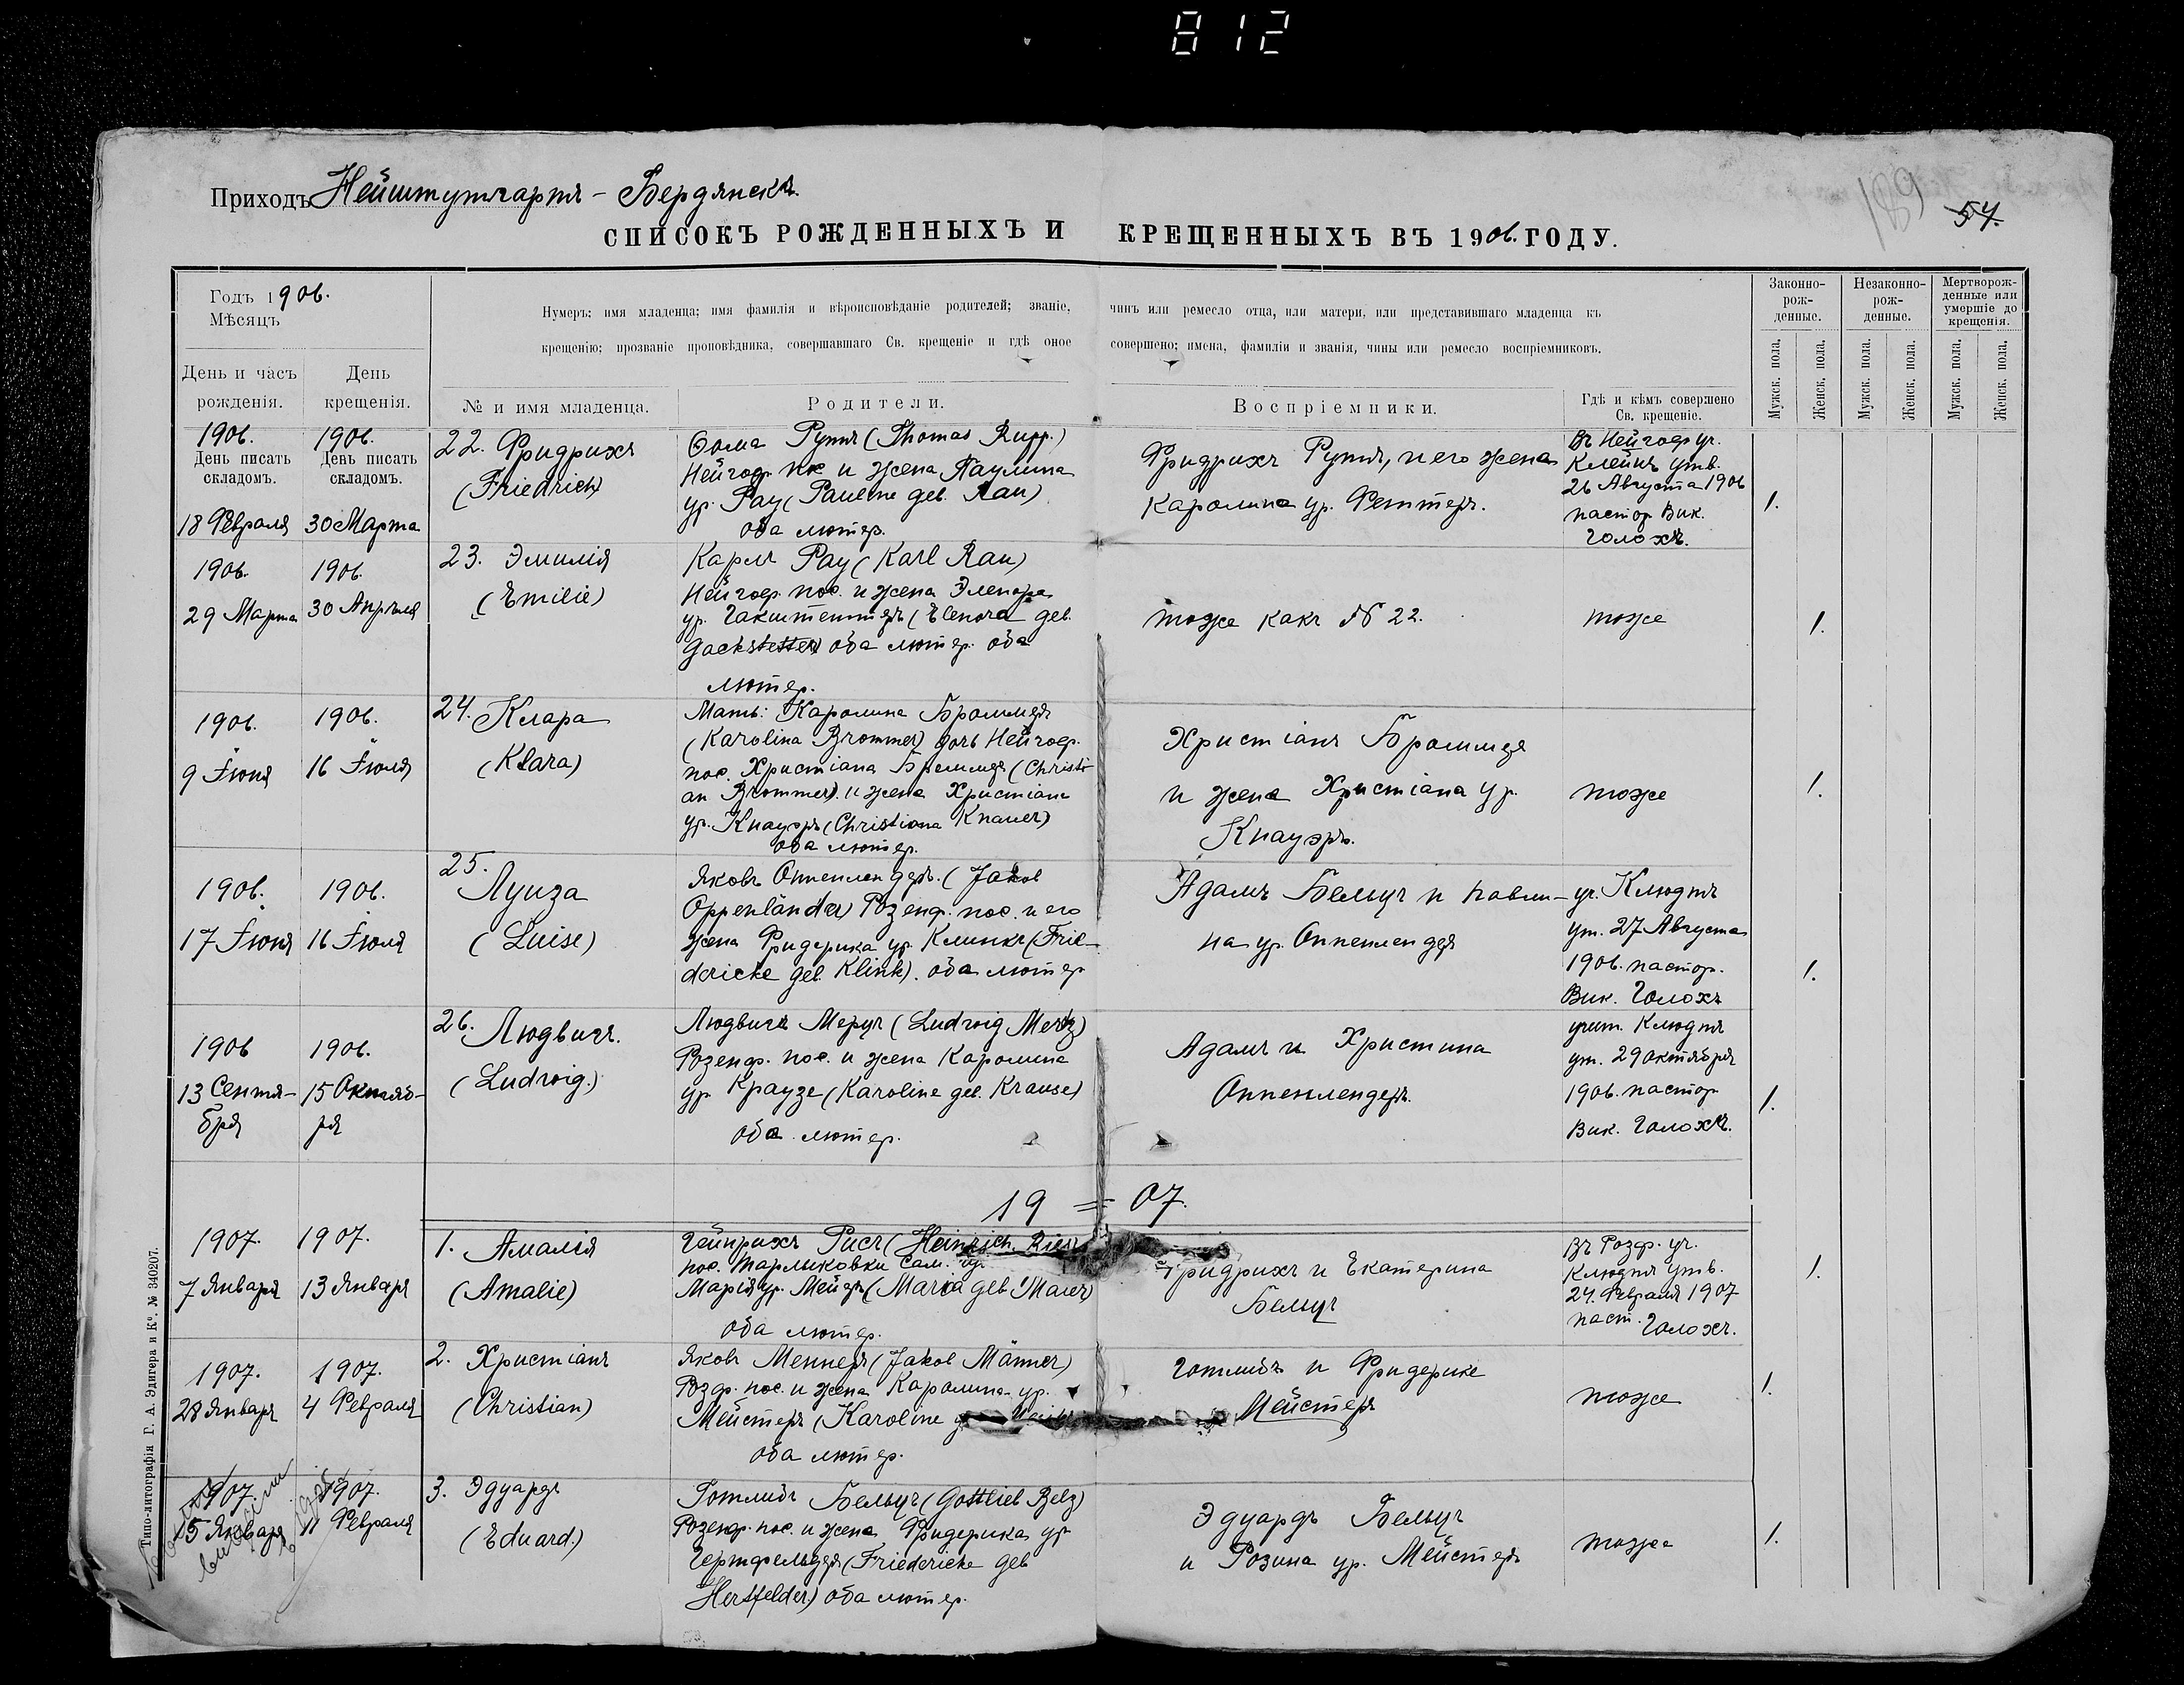 812
Приходъ Нейштутгартъ - Бердянскъ.
189
54.
СПИСОКЪ РОЖДЕННЫХЪ И КРЕЩЕННЫХЪ ВЪ 1906. ГОДУ.
Годъ 1906.
Мѣсяцъ
День и часъ рожденія.
День крещенія.
Нумеръ; имя младенца; имя фамилія и вѣроисповѣданіе родителей; званіе, чинъ или ремесло отца, или матери, или представившаго младенца къ
крещенію; прозваніе проповѣдника, совершавшаго Св. крещеніе и гдѣ оное совершено; имена, фамиліи и званія, чины или ремесло воспріемниковъ.
№ и имя младенца.
Родители.
Воспріемники.
Гдѣ и кѣмъ совершено
Св. крещеніе.
Законно-
рож-
денные.
Незаконно-
рож-
денные.
Мертворож-
денные или
умершіе до
крещенія.
Мужск. пола.
Женск. пола.
Мужск. пола.
Женск. пола.
Мужск. пола.
Женск. пола.
1906.
День писать
складомъ.
18 Февраля
1906.
День писать
складомъ.
30 Марта
22. Фридрихъ
(Friedrich)
Ѳома Руппъ (Thomas Rupp.)
Нейгоф. пос. и жена Паулина
ур. Рау (Pauline geb. Rau)
оба лютер.
Фридрихъ Руппъ, и его жена
Каролина ур. Феттеръ.
Въ Нейгоф уч.
Клейнъ утв.
26 Августа 1906
пастор Вик.
Голохъ.
1.
1906.
29 Марта
1906.
30 Апрѣля
23. Эмилія
(Emilie)
Карлъ Рау (Karl Rau)
Нейгоф. пос. и жена Элеонора
ур. Гакштеттеръ (Elenora geb.
Gackstetter) оба лютер. оба
лютер.
тоже какъ № 22.
тоже
1.
1906.
9 Iюня
1906.
16 Iюля
24. Клара
(Klara)
Мать: Каролина Броммеръ
(Karolina Brommer) дочь Нейгоф.
пос. Христіана Броммеръ (Christi-
an Brommer). и жена Христіана
ур. Кнауэръ (Christiana Knauer)
оба лютер.
Христіанъ Броммеръ
и жена Христіана ур.
Кнауэръ.
тоже
1.
1906.
17 Iюня
1906.
16 Iюля
25.
Луиза
(Luise)
Яковъ Оппенлендеръ. (Jakob
Oppenländer) Розенф. пос. и его
жена Фридерика ур. Клинкъ (Frie-
dericke geb. Klink). оба лютер
Адамъ Бельцъ и Павли-
на ур. Оппенлендеръ
уч. Клюдтъ
ут. 27 Августа
1906. пастор.
Вик. Голохъ
1.
1906
13 Сентя-
бря
1906.
15 Октяб-
ря
26. Людвигъ.
(Ludwig.)
Людвигъ Мерцъ (Ludwig Mertz)
Розенф. пос. и жена Каролина
ур. Краузе (Karoline geb. Krause)
оба лютер.
Адамъ и Христина
Оппенлендеръ.
учит. Клюдтъ
ут. 29 октября
1906. пастор
Вик. Голохъ.
1.
19 = 07.
1907.
7 Января
1907.
13 Января
1. Амалія
(Amalie)
Гейнрихъ Рисъ (Heinrich Ries)
пос. Тарлыковки Сам. гу.
Марія ур. Мейеръ (Maria geb. Maier)
оба лютер.
Фридрихъ и Екатерина
Бельцъ
Въ Розф. уч.
Клюдтъ утв.
24. Февраля 1907
паст. Голохъ.
1.
1907.
28 Января
1907.
4 Февраля
2. Христіанъ
(Christian)
Яковъ Меннеръ (Jakob Männer)
Розф. пос. и жена Каролина ур.
Мейстеръ (Karoline
оба лютер.
Готлибъ и Фридерике
Мейстеръ
тоже
1.
1907.
15 Января
1907.
11 Февраля
3. Эдуардъ
(Eduard.)
Готлибъ Бельцъ (Gottlieb Belz)
Розенф. пос. и жена Фридерика ур
Гертфельдеръ (Friedericke geb
Hertfelder) оба лютер.
Эдуардъ Бельцъ
и Розина ур. Мейстеръ
тоже
1.
Типо-литографія Г. А. Эдигера и Кº. № 340207.